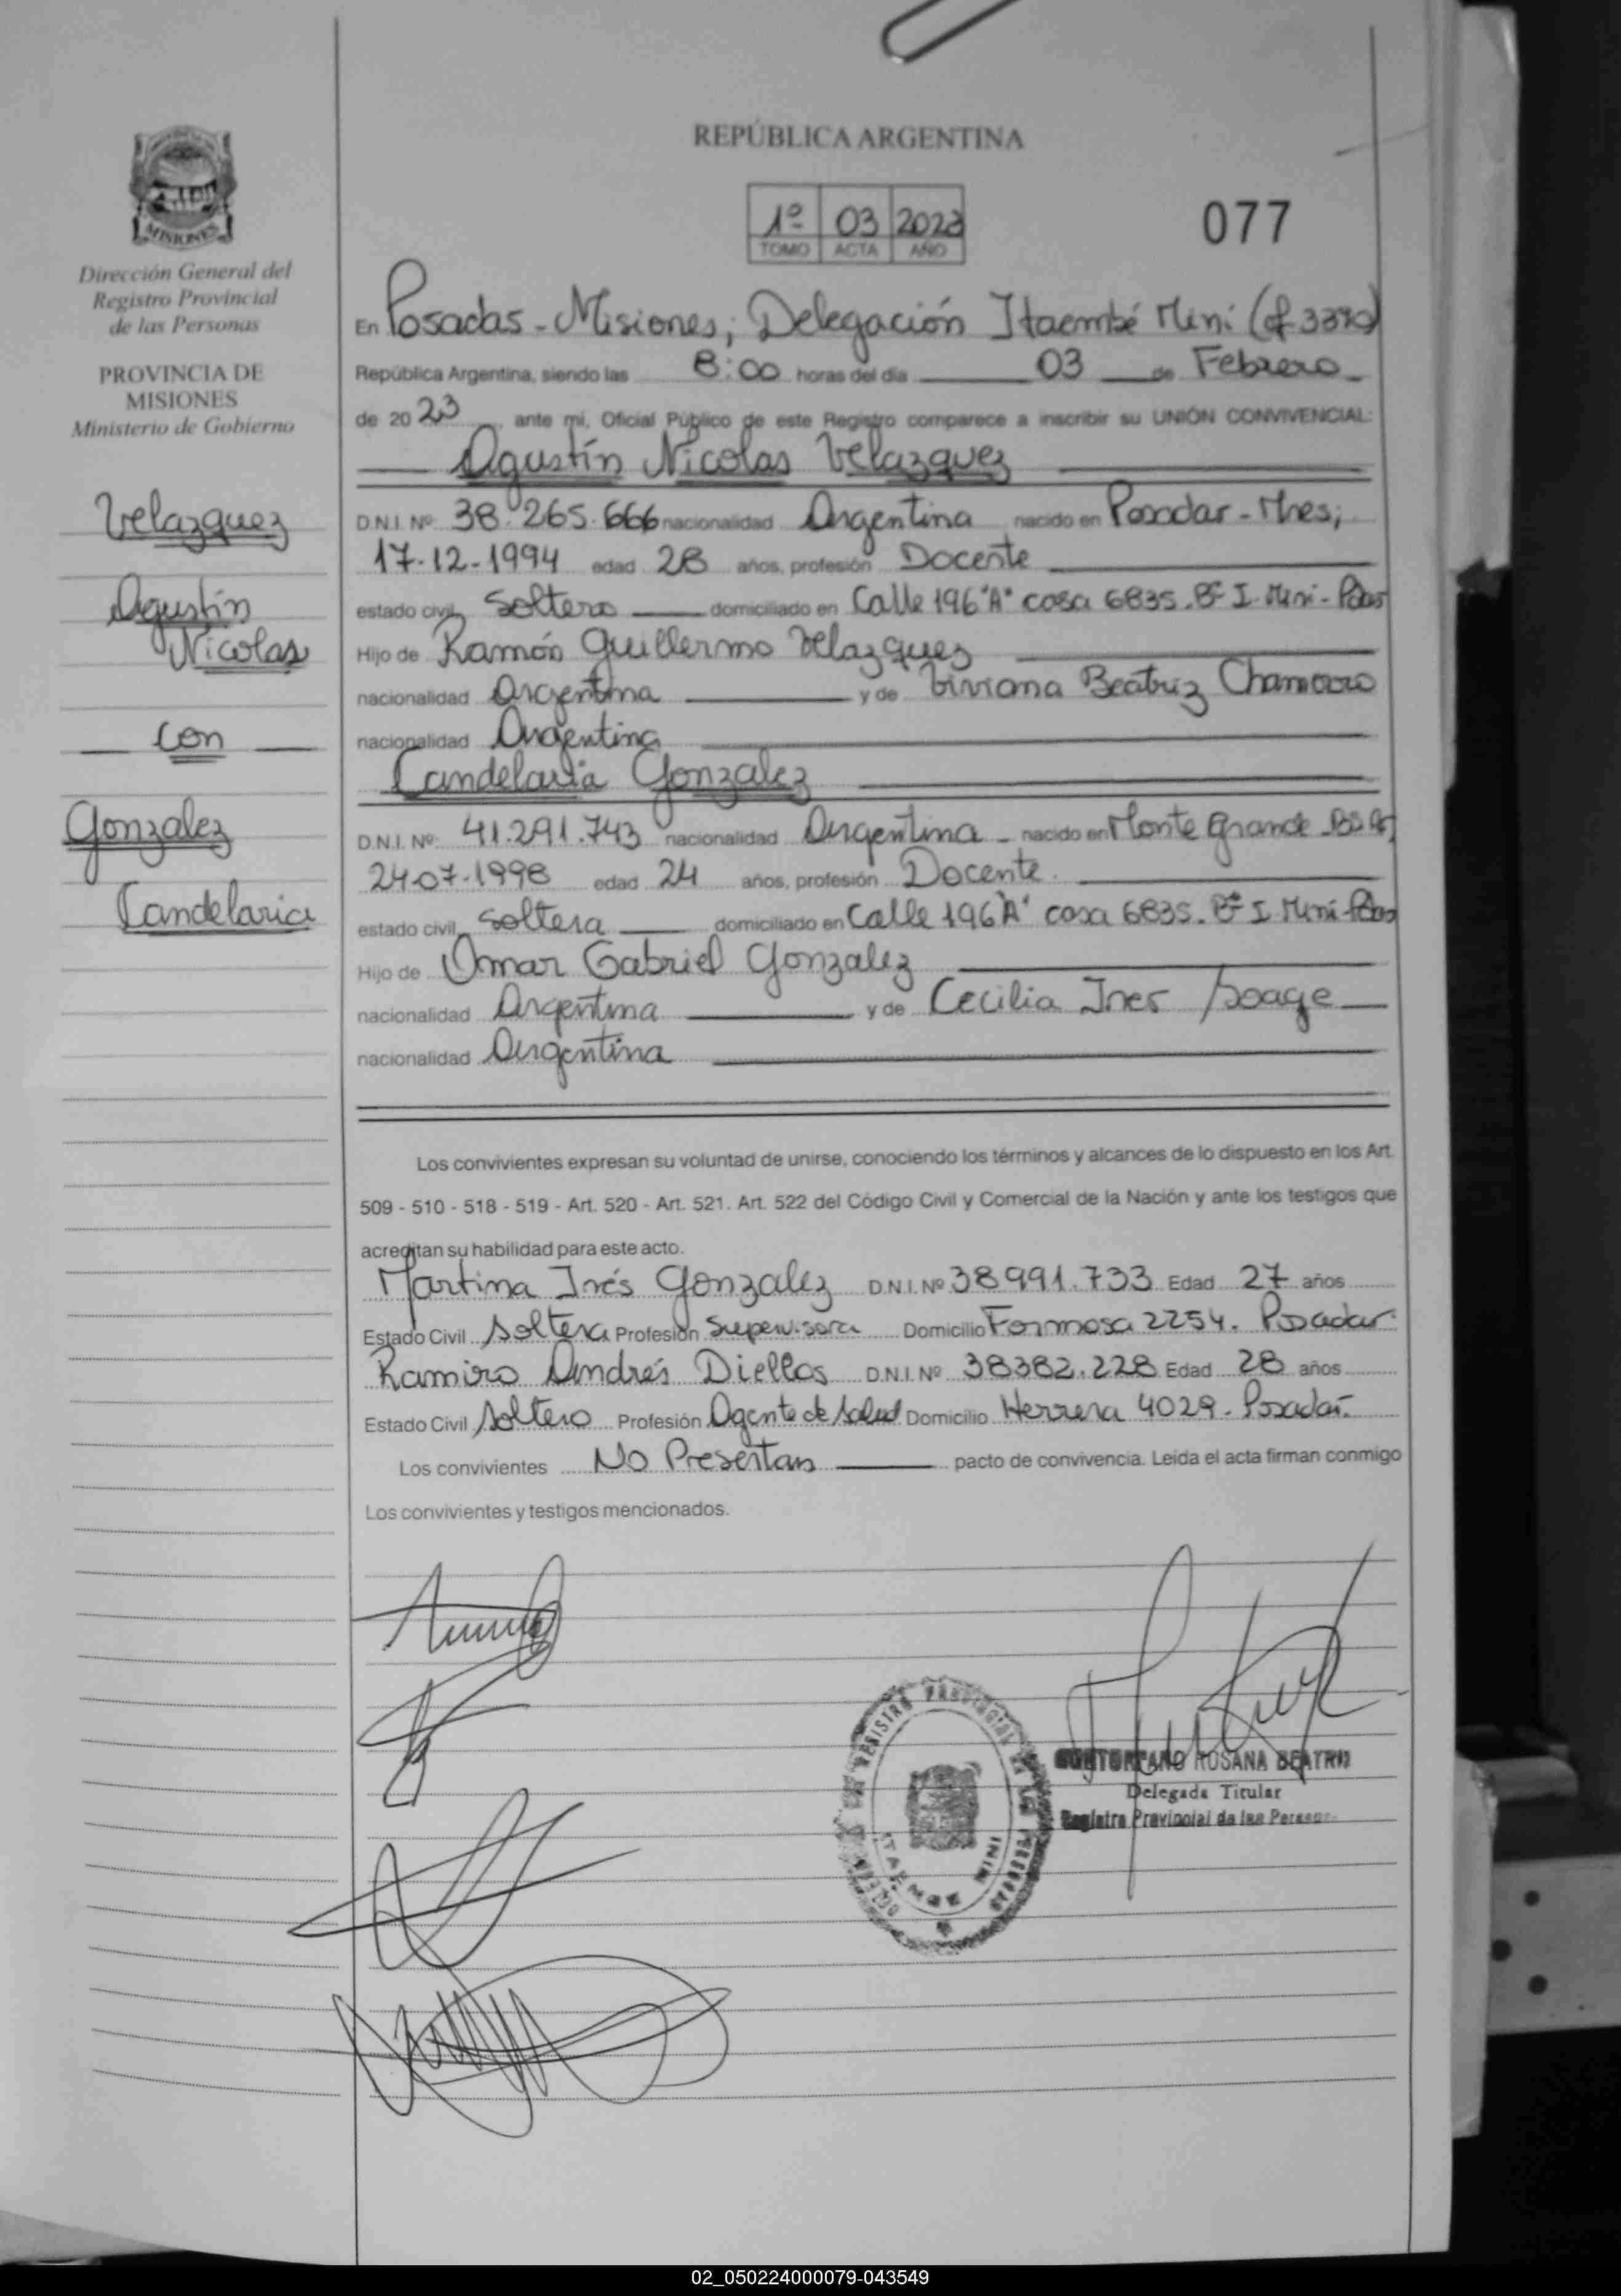 REPÚBLICA ARGENTINA
1º 03 2023
TOMO ACTA AÑO
077
MISIONES
Dirección General del
Registro Provincial
de las Personas
PROVINCIA DE
MISIONES
Ministerio de Gobierno
Velazquez
Agustín
Nicolas
con
Gonzalez
Candelaria
En Posadas - Misiones; Delegación Itaembé Mini (of 3370)
República Argentina, siendo las 8:00 horas del día 03 de Febrero
de 2023, ante mí, Oficial Público de este Registro comparece a inscribir su UNIÓN CONVIVENCIAL:
Agustín Nicolas Velazquez
D.N.I. Nº: 38.265.666 nacionalidad Argentina nacido en Posadas - Mnes;
17-12-1994 edad 28 años, profesión Docente
estado civil soltero domiciliado en Calle 196 "A" casa 6835. Bº I. Mini - Pdas
Hijo de Ramón Guillermo Velazquez
nacionalidad Argentina y de Viviana Beatriz Chamorro
nacionalidad Argentina
Candelaria Gonzalez
D.N.I. Nº: 41.291.743 nacionalidad Argentina - nacido en Monte Grande - Bs As,
24-07-1998 edad 24 años, profesión Docente.
estado civil soltera domiciliado en Calle 196 "A" casa 6835. Bº I. Mini - Pdas
Hijo de Omar Gabriel Gonzalez
nacionalidad Argentina y de Cecilia Ines Soage
nacionalidad Argentina
Los convivientes expresan su voluntad de unirse, conociendo los términos y alcances de lo dispuesto en los Art.
509 - 510 - 518 - 519 - Art. 520 - Art. 521. Art. 522 del Código Civil y Comercial de la Nación y ante los testigos que
acreditan su habilidad para este acto.
Martina Inés Gonzalez D.N.I. Nº 38991.733 Edad 27 años
Estado Civil soltera Profesión Supervisora Domicilio Formosa 2254. Posadas.
Ramiro Andrés Diellos D.N.I. Nº 38382.228 Edad 28 años
Estado Civil soltero Profesión Agente de salud Domicilio Herrera 4029. Posadas.
Los convivientes No Presentan pacto de convivencia. Leída el acta firman conmigo
Los convivientes y testigos mencionados.
ROSANA BEATRIZ
Delegada Titular
Registro Provincial de las Personas
REGISTRO PROVINCIAL DE LAS PERSONAS
ITAEMBE MINI
02_050224000079-043549